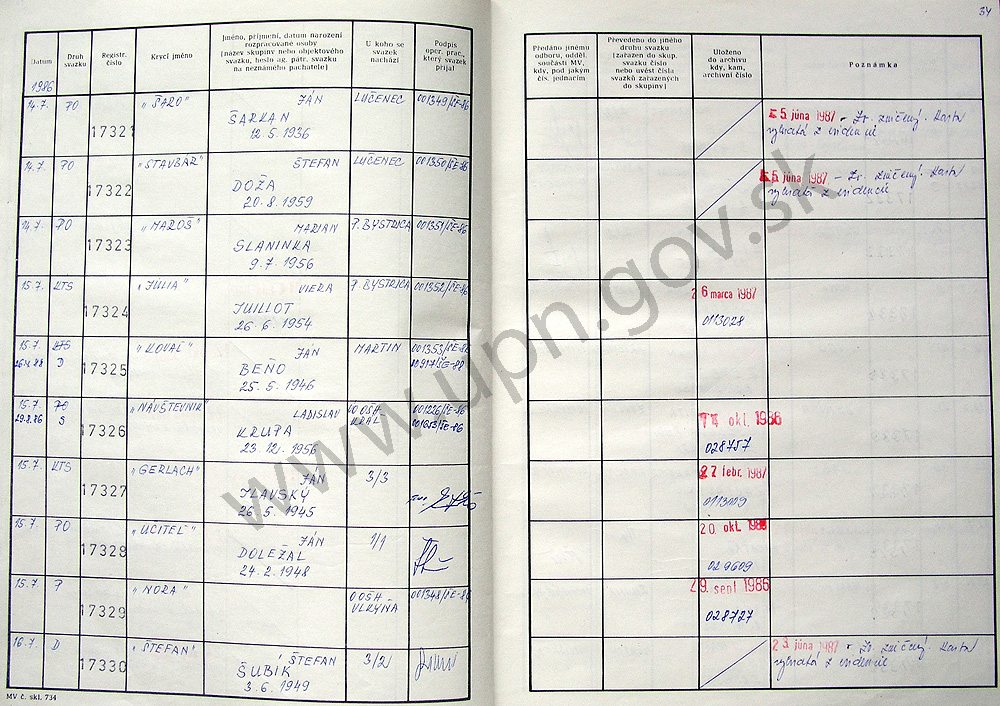 34
Datum
Druh svazku
Registr. číslo
Krycí jméno
Jméno, příjmení, datum narození
rozpracované osoby
(název skupiny nebo objektového
svazku, heslo ag. pátr. svazku
na neznámého pachatele)
U koho se
svazek
nachází
Podpis
oper. prac.,
který svazek
přijal
Předáno jinému
odboru, odděl.
součásti MV,
kdy, pod jakým
čís. jednacím
Převedeno do jiného
druhu svazku
(zařazen do skup.
svazku číslo
nebo uvést čísla
svazků zařazených
do skupiny)
Uloženo
do archivu
kdy, kam,
archivní číslo
Poznámka
1986
14.7. PO 17321 „ŠARO" JÁN LUČENEC 001349/ŠE-86
ŠARKAN
12.5.1936
5. júna 1987 - Zv. zničený. Karta
vybratá z evidencie
14.7. PO 17322 „STAVBÁR" ŠTEFAN LUČENEC 001350/ŠE-86
DOŽA
20.8.1959
5. júna 1987 - Zv. zničený. Karta
vybratá z evidencie
14.7. PO 17323 „MAROŠ" MARIAN P. BYSTRICA 001351/ŠE-86
SLANINKA
9.7.1956
15.7. KTS 17324 „JÚLIA" VIERA P. BYSTRICA 001352/ŠE-86
JUILLOT
26.6.1954
26 marca 1987
0113028
15.7. KTS 17325 „KOVÁČ" JÁN MARTIN 001353/ŠE-86
D
BEŇO
25.5.1946
15.7. PO 17326 „NÁVŠTEVNÍK" LADISLAV OOŠA- 001226/ŠE-86
29.8.86 S KRÁĽ 001653/ŠE-86
KRUPA
23.12.1956
14 okt. 1986
028757
15.7. KTS 17327 „GERLACH" JÁN 3/3
ILAVSKÝ
26.5.1945
27 febr. 1987
15.7. PO 17328 „UČITEĽ" JÁN 1/1
DOLEŽAL
24.2.1948
20. okt. 1986
029609
15.7. P 17329 „NORA" OOŠA- 001348/ŠE-86
29. sept 1986
028727
16.7. D 17330 „ŠTEFAN" ŠTEFAN 3/2
ŠUBÍK
3.6.1949
23. júna 1987 - Zv. zničený. Karta
vybratá z evidencie
MV č. skl. 734
www.upn.gov.sk